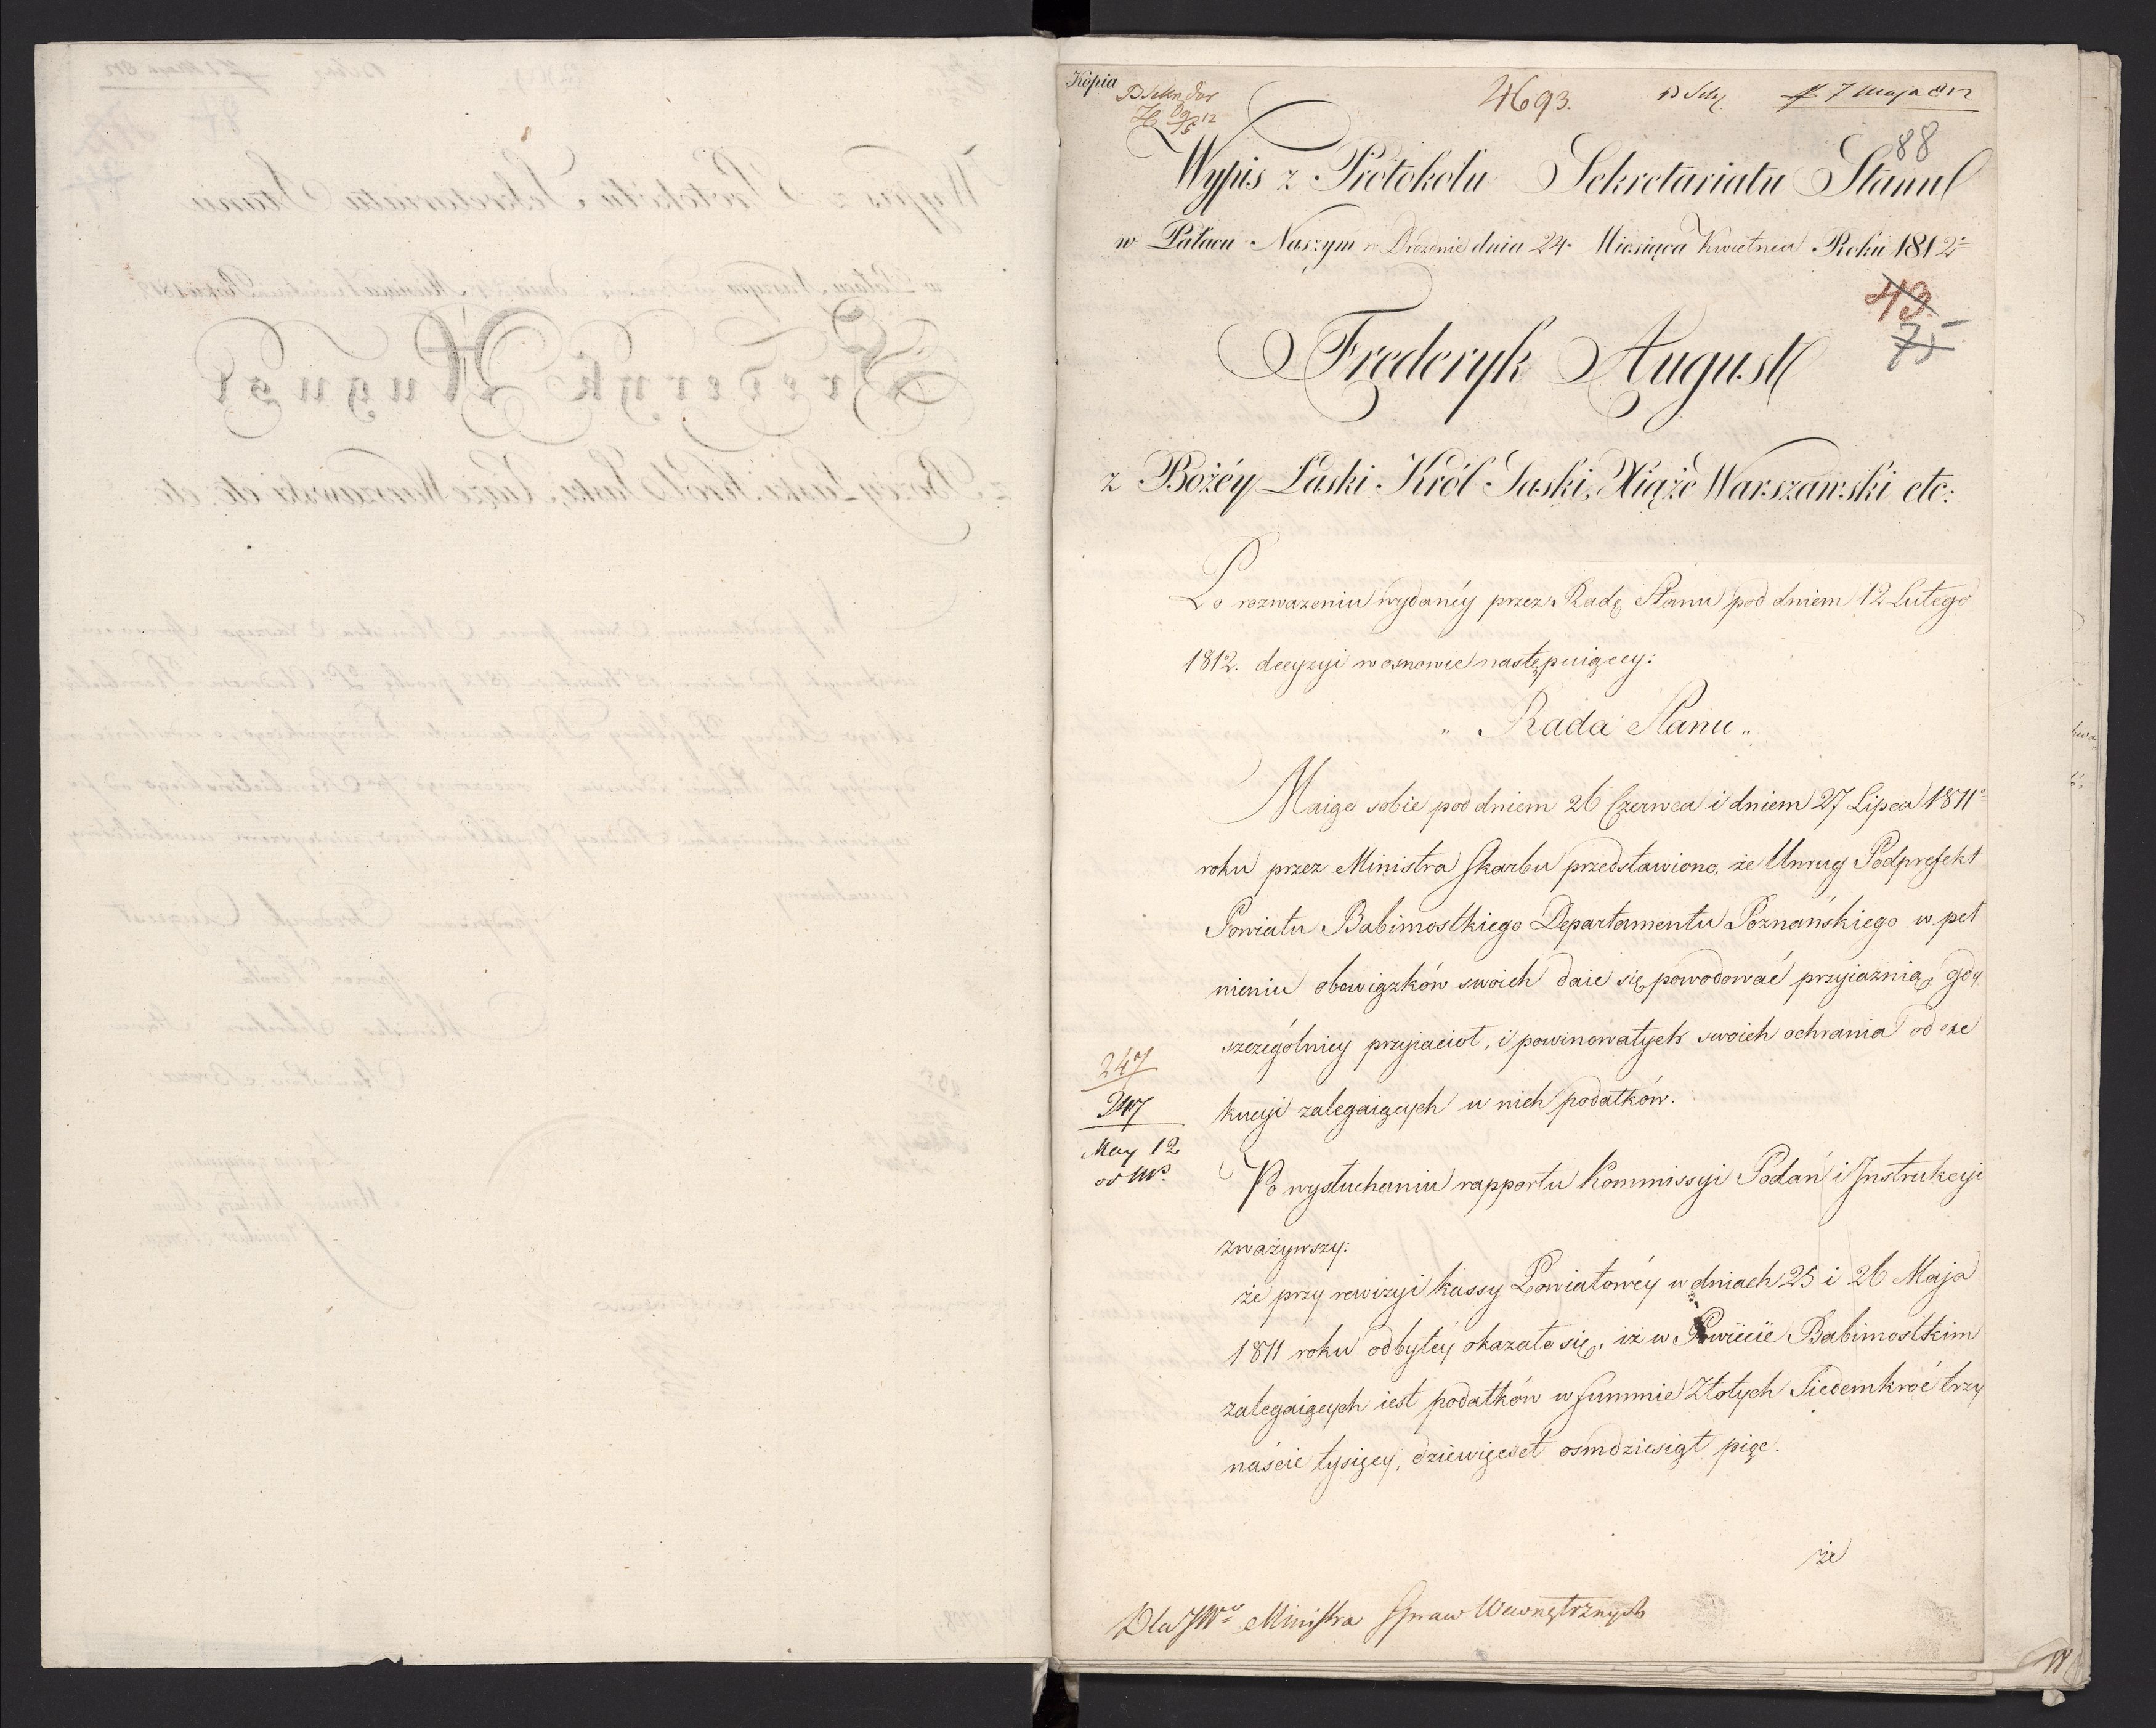 Kopia
4693.
7 maja 812
88
Wypis z Protokołu Sekretariatu Stanu
w Pałacu Naszym w Dreznie dnia 24. Miesiąca Kwietnia Roku 1812
43
75
Frederyk August
z Bożéy Łaski Król Saski, Xiąże Warszawski etc:
Po rozważeniu wydanéy przez Radę Stanu pod dniem 12 Lutego
1812. decyzyi w osnowie następuiącey:
„ Rada Stanu „
Maiąc sobie pod dniem 26 Czerwca i dniem 27 Lipca 1811
roku przez Ministra Skarbu przedstawiono, że Unrug Podprefekt
Powiatu Babimostkiego Departamentu Poznańskiego w peł
nieniu obowiązków swoich daie się powodować przyiaźnią, gdy
szczególniey przyiaciół, i powinowatych swoich ochrania od exe
kucyi zalegaiących u nich podatków.
247
247
May 12
od
Po wysłuchaniu rapportu Kommissyi Podań i Instrukcyi
zważywszy:
że przy rewizyi kassy Powiatowéy w dniach 25 i 26 Maja
1811 roku odbytéy okazało się, iż w Powiecie Babimostkim
zalegaiących iest podatków w summie Złotych Siedemkroć trzy
naście tysięcy, dziewięcset osmdziesiąt pięc.
że
Dla JW Ministra Spraw Wewnętrznych